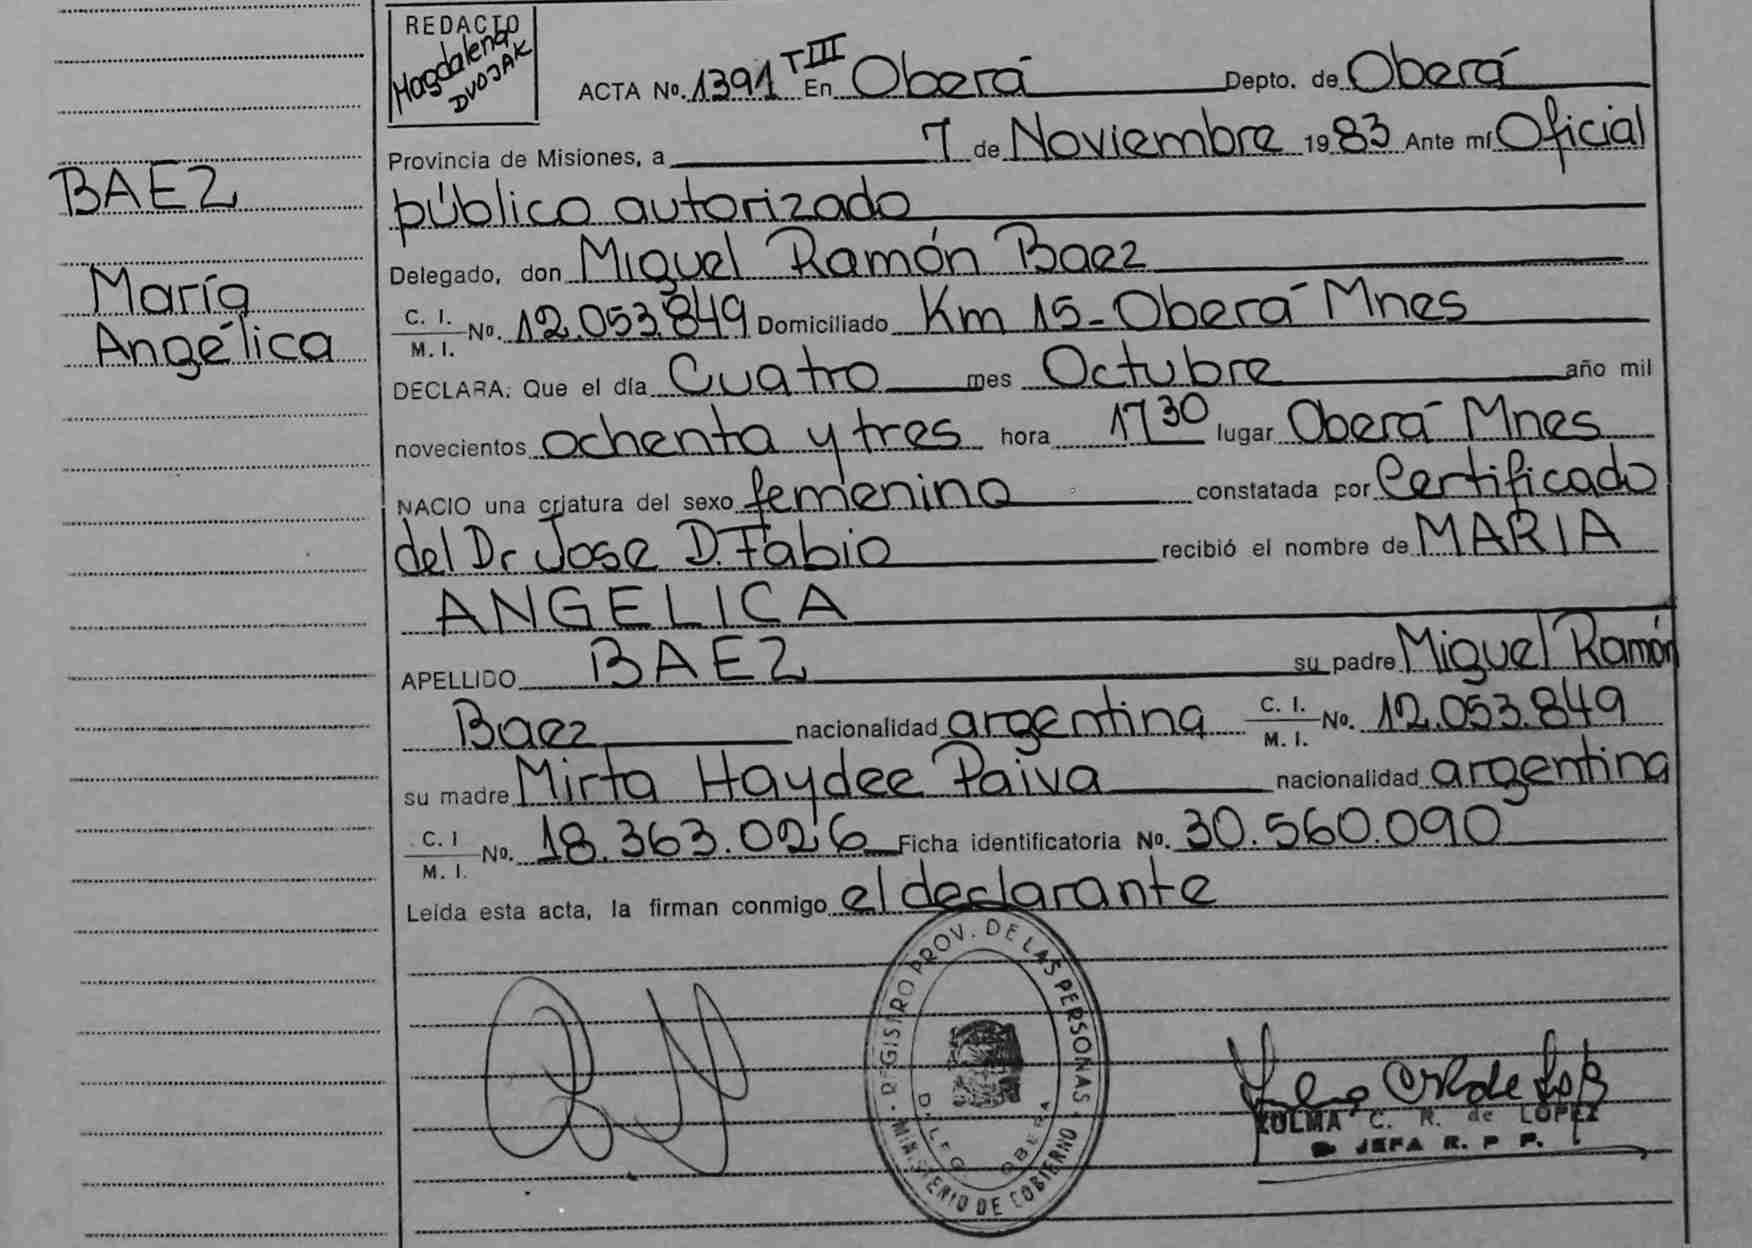 REDACTO
Magdalena
DVOJAK
ACTA No. 1391 TIII En Oberá Depto. de Oberá
Provincia de Misiones, a 7 de Noviembre 1983 Ante mí Oficial
público autorizado
Delegado, don Miguel Ramón Baez
C. I. / M. I. No. 12.053.849 Domiciliado Km 15 - Oberá Mnes
DECLARA: Que el día Cuatro mes Octubre año mil
novecientos ochenta y tres hora 17 30 lugar Oberá Mnes
NACIO una criatura del sexo femenino constatada por Certificado
del Dr Jose D. Fabio recibió el nombre de MARIA
ANGELICA
APELLIDO BAEZ su padre Miguel Ramón
Baez nacionalidad argentina C. I. / M. I. No. 12.053.849
su madre Mirta Haydee Paiva nacionalidad argentina
C. I / M. I. No. 18.363.026 Ficha identificatoria No. 30.560.090
Leída esta acta, la firman conmigo el declarante
BAEZ
María
Angélica
REGISTRO PROV. DE LAS PERSONAS
MINISTERIO DE GOBIERNO
DELEG OBERA
ZULMA C. R. de LOPEZ
JEFA R. P P.